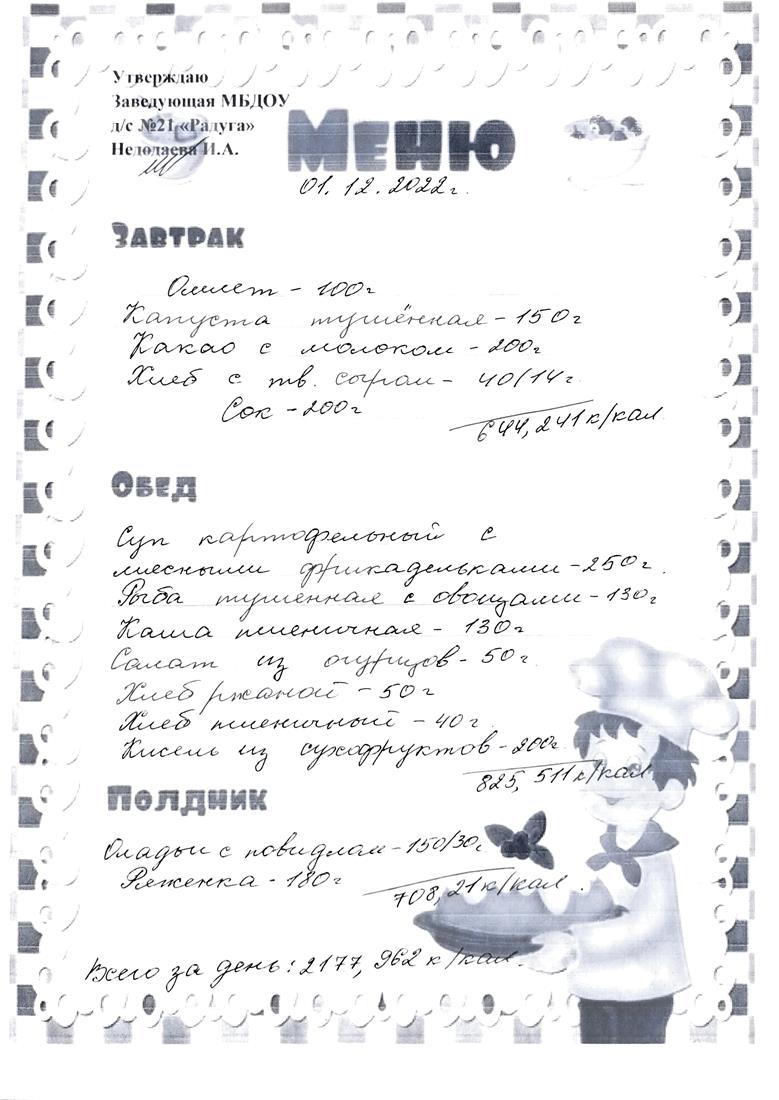 Утверждаю
Заведующая МБДОУ
д/с №21 «Радуга»
Недодаева И.А.
Меню
01.12.2022г.
Завтрак
Омлет - 100г
Капуста тушённая - 150г
Какао с молоком - 200г
Хлеб с тв. сыром - 40/14г.
Сок - 200г
644,241 к/кал
Обед
Суп картофельный с
мясными фрикадельками - 250г.
Рыба тушенная с овощами - 130г
Каша пшеничная - 130г
Салат из огурцов - 50г
Хлеб ржаной - 50г
Хлеб пшеничный - 40г
Кисель из сухофруктов - 200г
825,511 к/кал
Полдник
Оладьи с повидлам - 150/30г
Ряженка - 180г
708,21 к/кал.
Всего за день: 2177,962 к/кал.